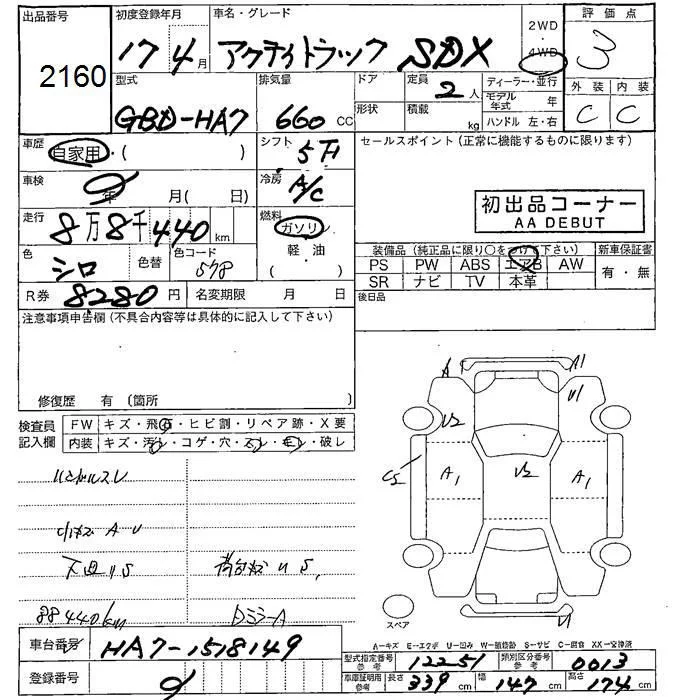 出品番号
2160
初度登録年月
17 4月
車名・グレード
アクティトラック SDX
2WD
・
4WD
評価点
3
外装
C
内装
C
型式
GBD-HA7
排気量
660 CC
ドア
形状
定員
2人
積載
kg
ディーラー・並行
モデル年式 年
ハンドル 左・右
車歴
自家用・( )
シフト
5
車検
年 月( 日)
冷房
A/C
走行
8万8千440 km
燃料
ガソリン
軽・油
( )
色
シロ
色替
色コード
578
R券
8280円
名変期限 月 日
セールスポイント (正常に機能するものに限ります)
初出品コーナー
AA DEBUT
装備品 (純正品に限り○をつけて下さい)
新車保証書
PS PW ABS エアB AW
SR ナビ TV 本革
有・無
後日品
注意事項申告欄 (不具合内容等は具体的に記入して下さい)
修復歴 有 (箇所 )
検査員記入欄
FW キズ・飛石・ヒビ割・リペア跡・X要
内装 キズ・汚レ・コゲ・穴・スレ・モレ・破レ
ハンドルスレ
A U
下回り S
荷台 U S,
88440km
DミラーA
A1
U1
U2
A1
U2
A1
U1
スペア
車台番号
HA7-1518149
登録番号
A=キズ E=エクボ U=凹み W=補修跡 S=サビ C=腐食 XX=交換済
型式指定番号 参考
12251
類別区分番号 参考
0013
車庫証明用 参考
長さ 339 cm
幅 147 cm
高さ 174 cm